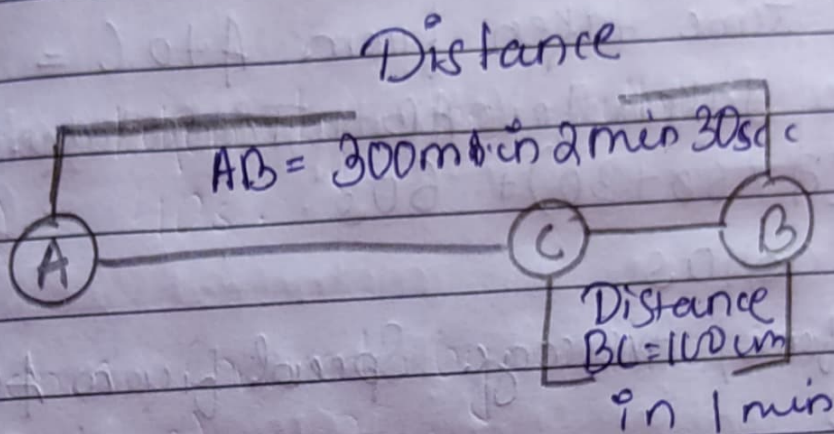 Distance
AB = 300m in 2 min 30sec
A
C
B
Distance
BC = 100 cm
in 1 min